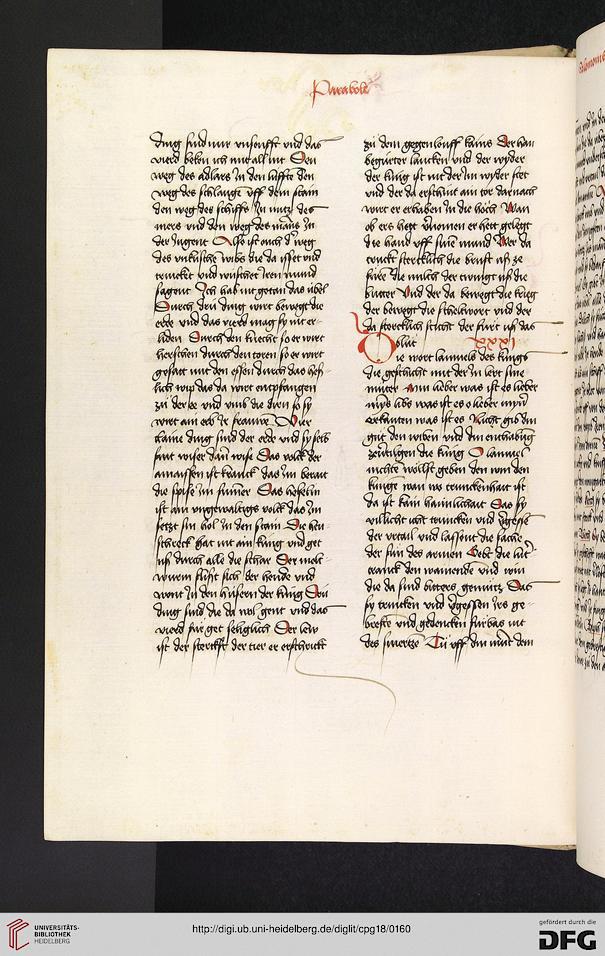 Parabole
ding sind mir unsenfft und das
vierd beken ich nit all mit Den
weg des adlars in den lüfften den
weg des schlangen uff dem stain
den weg des schiffs in mitz des
mers und den weg des mans in
der jugent Also ist ouch der weg
des unküschen wibs die da isset und
trincket und wüschet iren mund
sagent Ich hab nit getan das übel
Durch drü ding wirt bewegt die
erde und das vierd mag sy nit er
liden Durch den knecht so er wirt
herschen durch den toren so er wirt
gesatt mit den essen durch das
lich wip das da wirt enpfangen
zu der ee und umb die dirn so sy
wirt ain erb ir frawen Vier
klaine ding sind der erde und sy selb
sint wiser dan wise Das volck der
amaissen ist kranck das im berait
die spise im sumer Das heselin
ist ain ungewaltigs volck das in
setzt sin hol in den stain Die heu
schreck hat nit ain küng und get
uß durch alle die schar Der molt
wurm sich der hende und
wont in den hüsern der küng Drü
ding sind die da wol gent und das
vierd get seliglich Der lew
ist der sterckst der tier er erschrickt
zu dem gegenlouff kains Der han
begürter lancken und der wyder
der küng ist nit der im wyder stet
und der da erschint ain tor darnach
wirt er erhaben in die höch Wan
ob ers hett vernomen er hett gelegt
die hand uff sinen mund Wer da
truckt stercklich die brust uß ze
füren die milch der zwingt uß die
butter Und der da bewegt die krieg
der bewegt die scheltwort und der
da stercklich sticht der fürt uß das
blut XXXI
Die wort lamuels des küngs
die gesichcht mit der in lert sine
müter Min lieber was ist es lieber
mins libs was ist es o lieber miner
erkanten was ist es Nicht gib din
gut den wiben und din enthabung
zevertilgen die küng O lamuel
nichte wöllest geben den win den
küngen wan wo trunckenhait ist
da ist kain haimlichait Das sy
villicht icht trincken und vergessen
der urtail und lassent die sache
der sün des armen Gebt die
tranck den wainende und win
die da sind bitters gemütz Das
sy trincken und vergessen irs ge
breste und gedencken fürbas nit
des smertzen Tü uff din mund dem
UNIVERSITÄTS-
BIBLIOTHEK
HEIDELBERG
http://digi.ub.uni-heidelberg.de/diglit/cpg18/0160
gefördert durch die
DFG